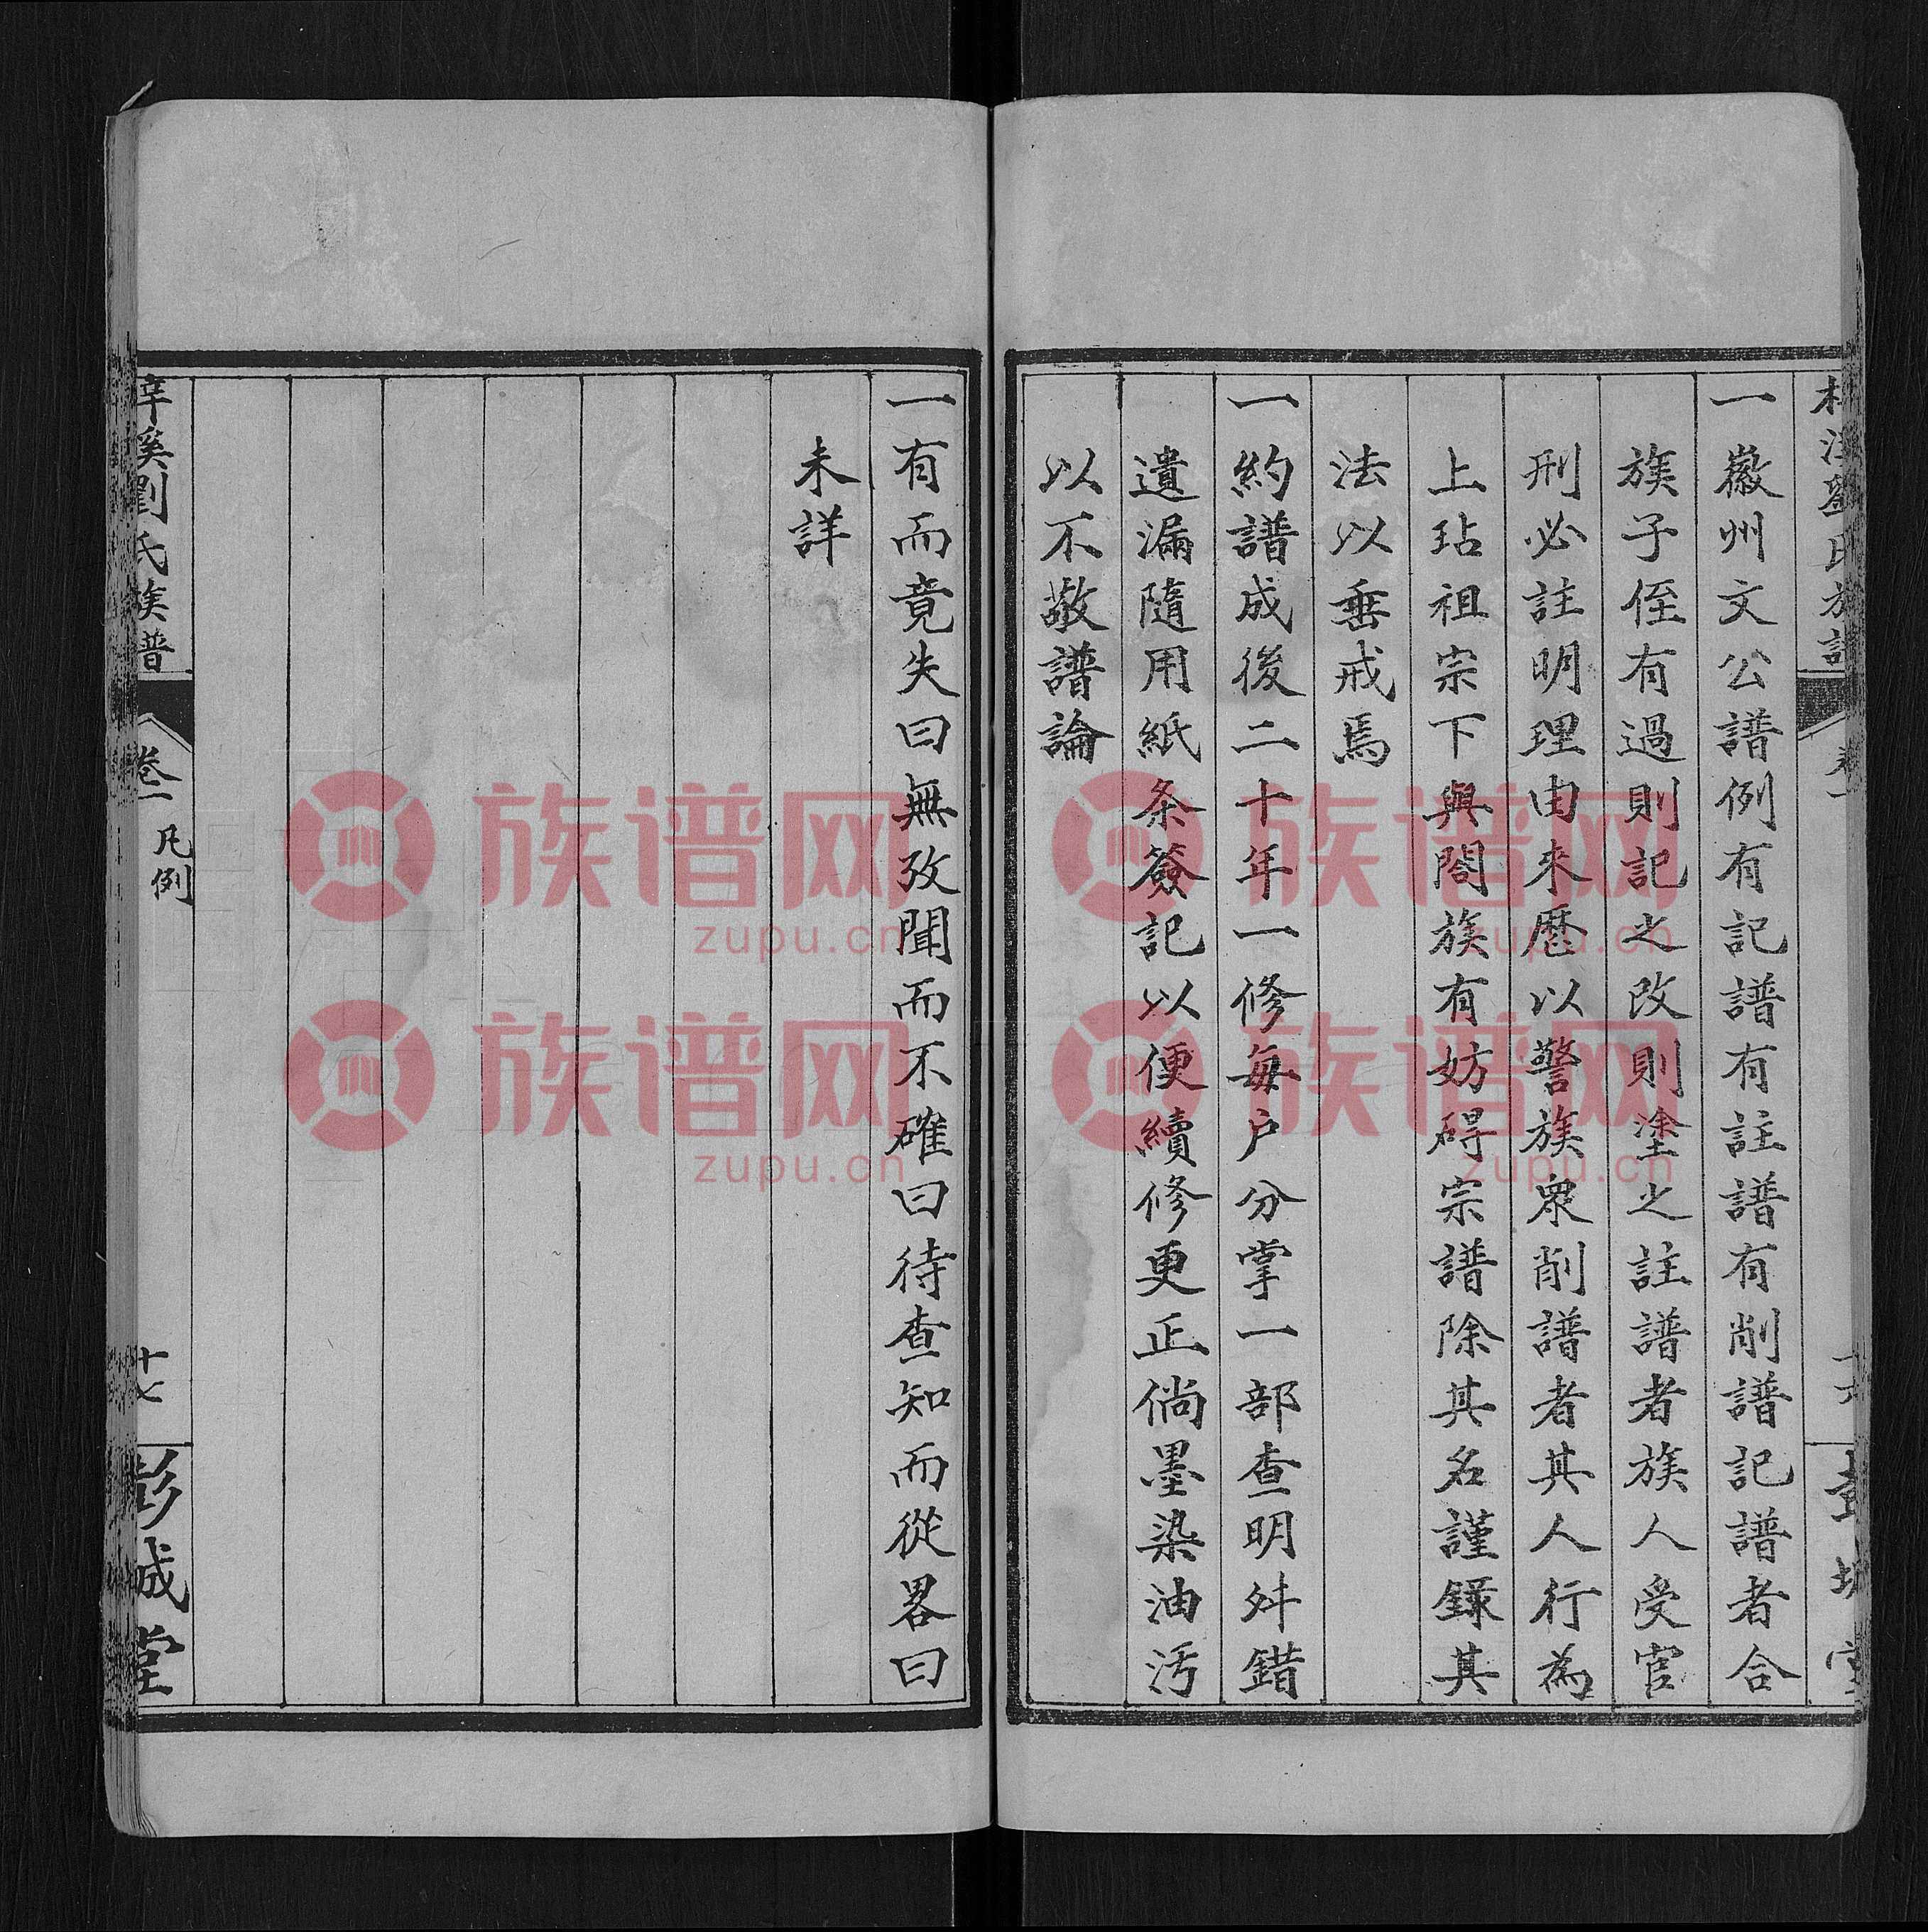 一徽州文公譜例有記譜有註譜有削譜記譜者合
族子侄有過則記之改則塗之註譜者族人受官
刑必註明理由來歷以警族眾削譜者其人行為
上玷祖宗下與閤族有妨碍宗譜除其名謹錄其
法以垂戒焉
一約譜成後二十年一修每户分掌一部查明舛錯
遺漏隨用紙条簽記以便續修更正倘墨染油污
以不敬譜論
一有而竟失曰無攷聞而不確曰待查知而從畧曰
未詳
溪劉氏族譜
卷一
凡例
十七
彭城堂
族谱网
zupu.cn
族谱网
zupu.cn
族谱网
zupu.cn
族谱网
zupu.cn